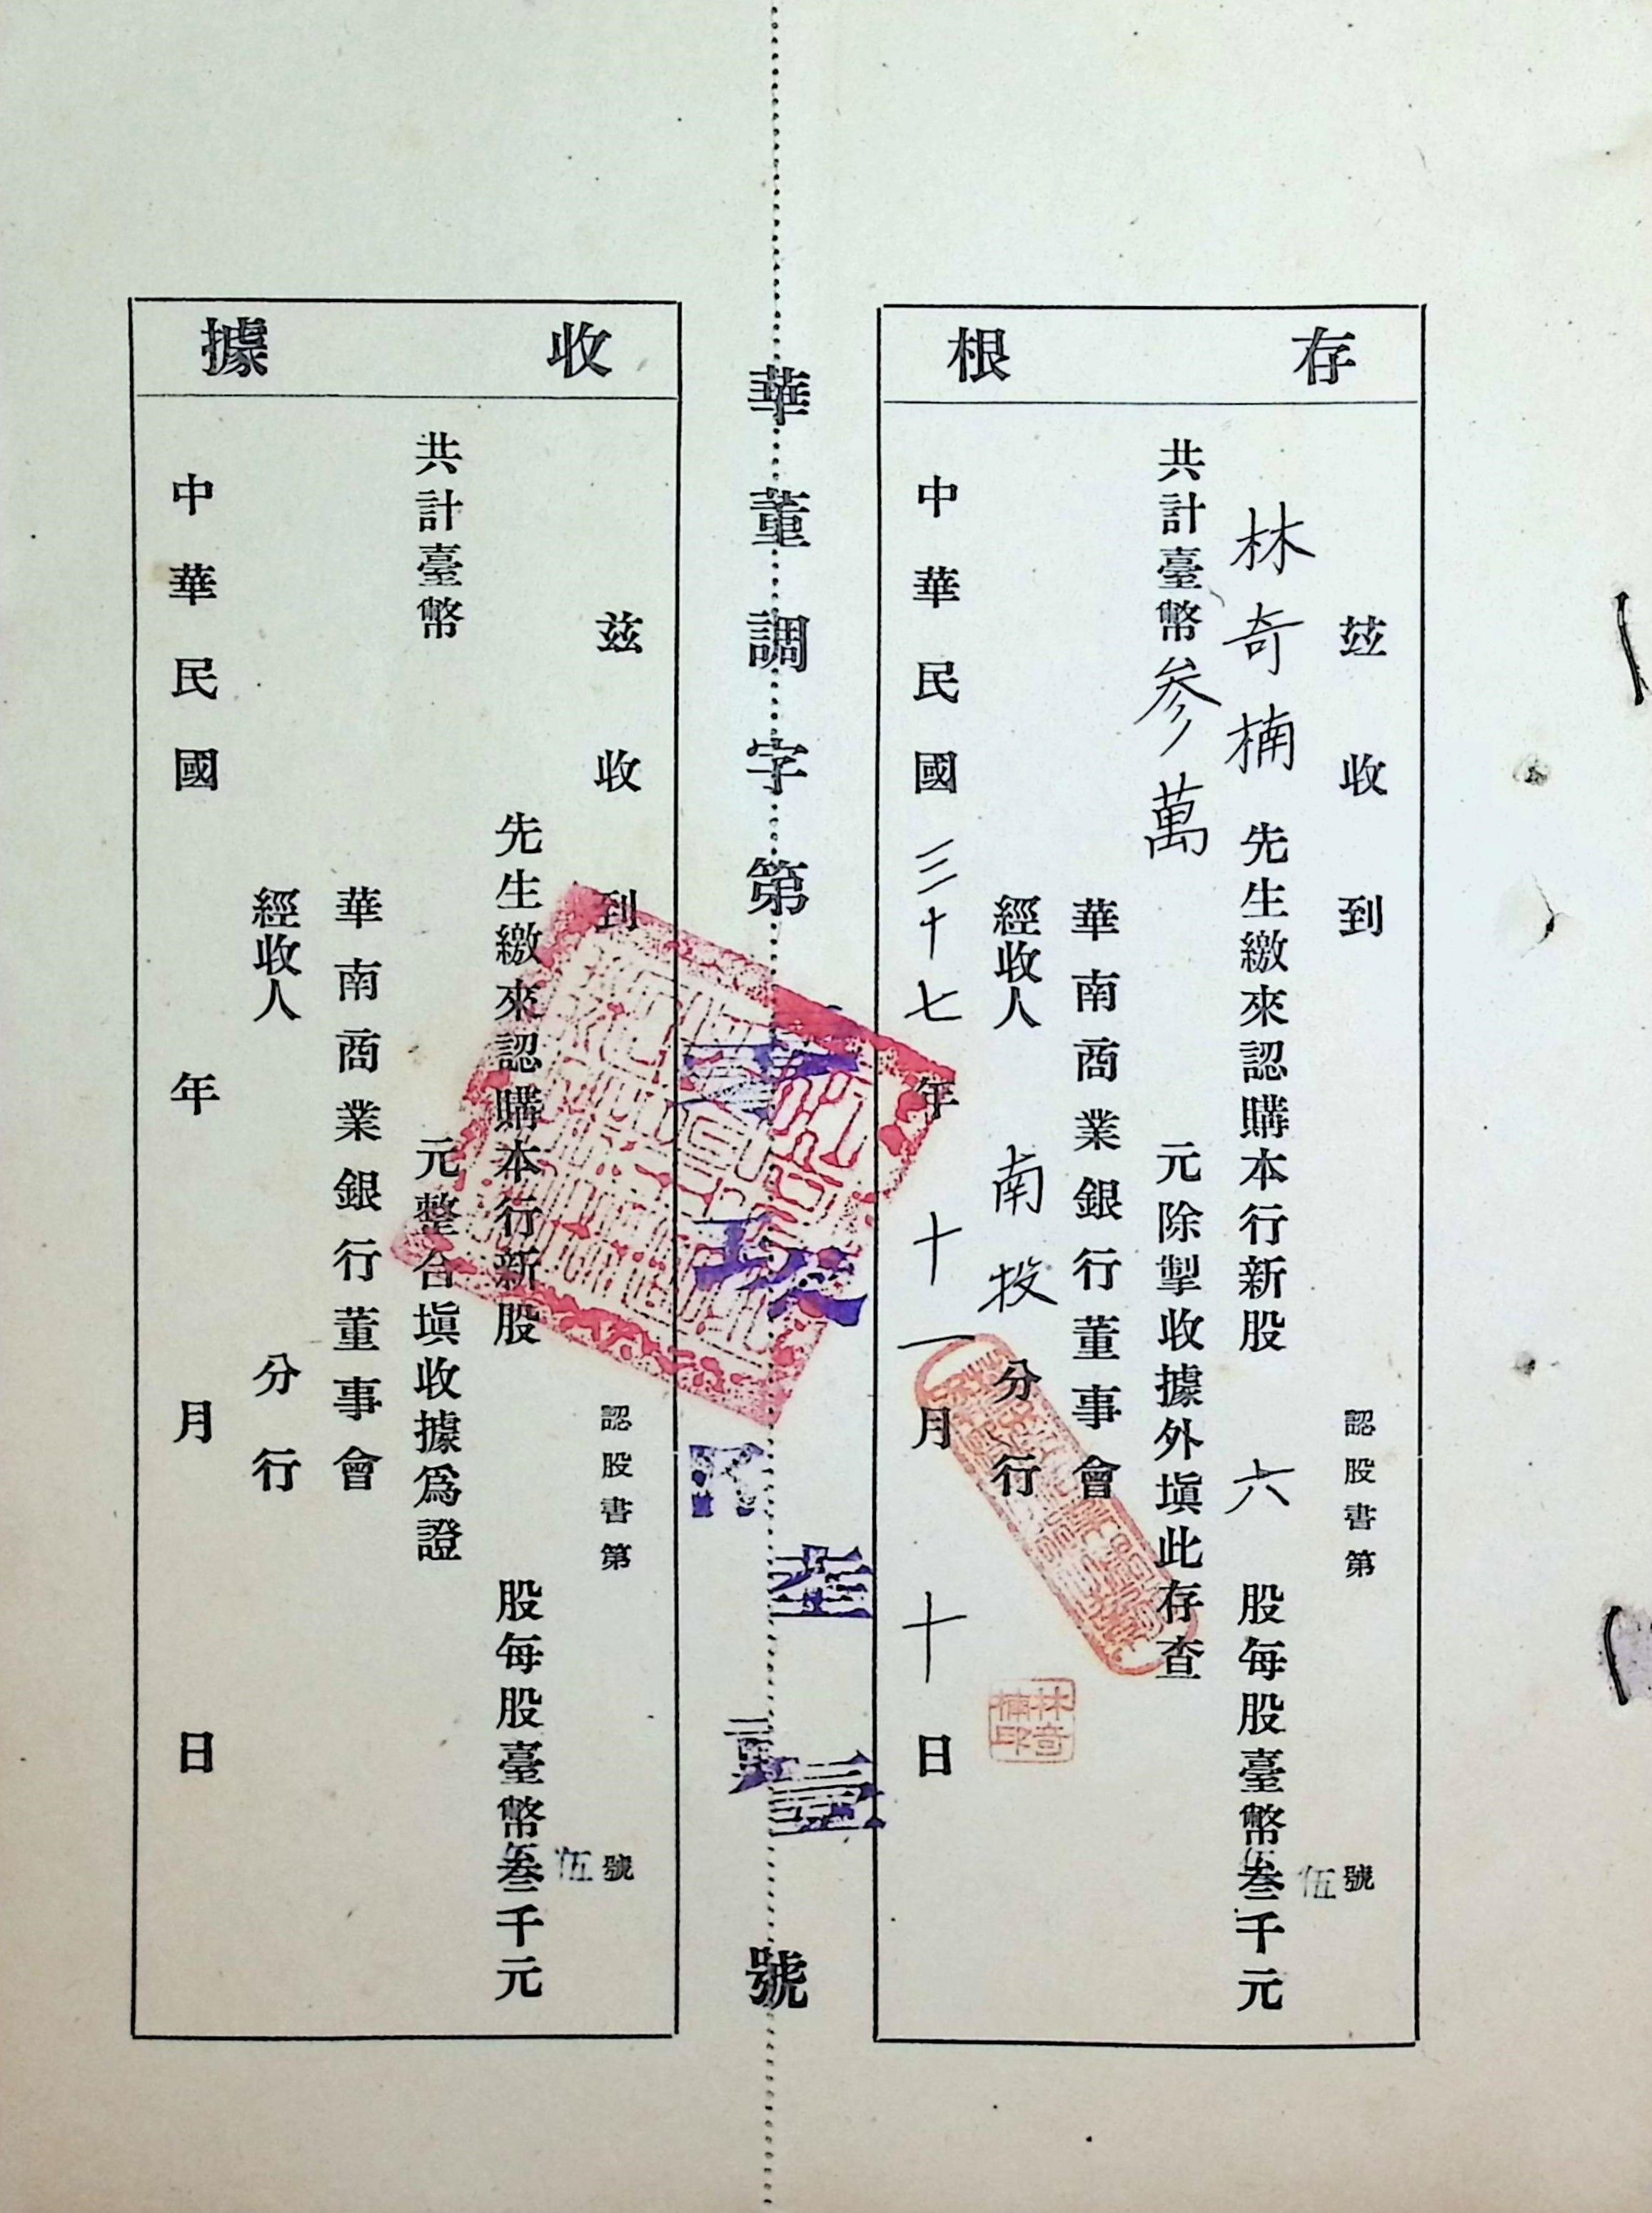 存根
茲收到
認股書第 號
林奇楠先生繳來認購本行新股六股每股臺幣叁千元
伍
共計臺幣参萬元除掣收據外塡此存査
華南商業銀行董事會
經收人南投分行
林奇楠印
中華民國三十七年十一月十日
華董調字第 號
收據
茲收到
認股書第 號
先生繳來認購本行新股 股每股臺幣叁千元
伍
共計臺幣 元整合塡收據爲證
華南商業銀行董事會
經收人 分行
中華民國 年 月 日